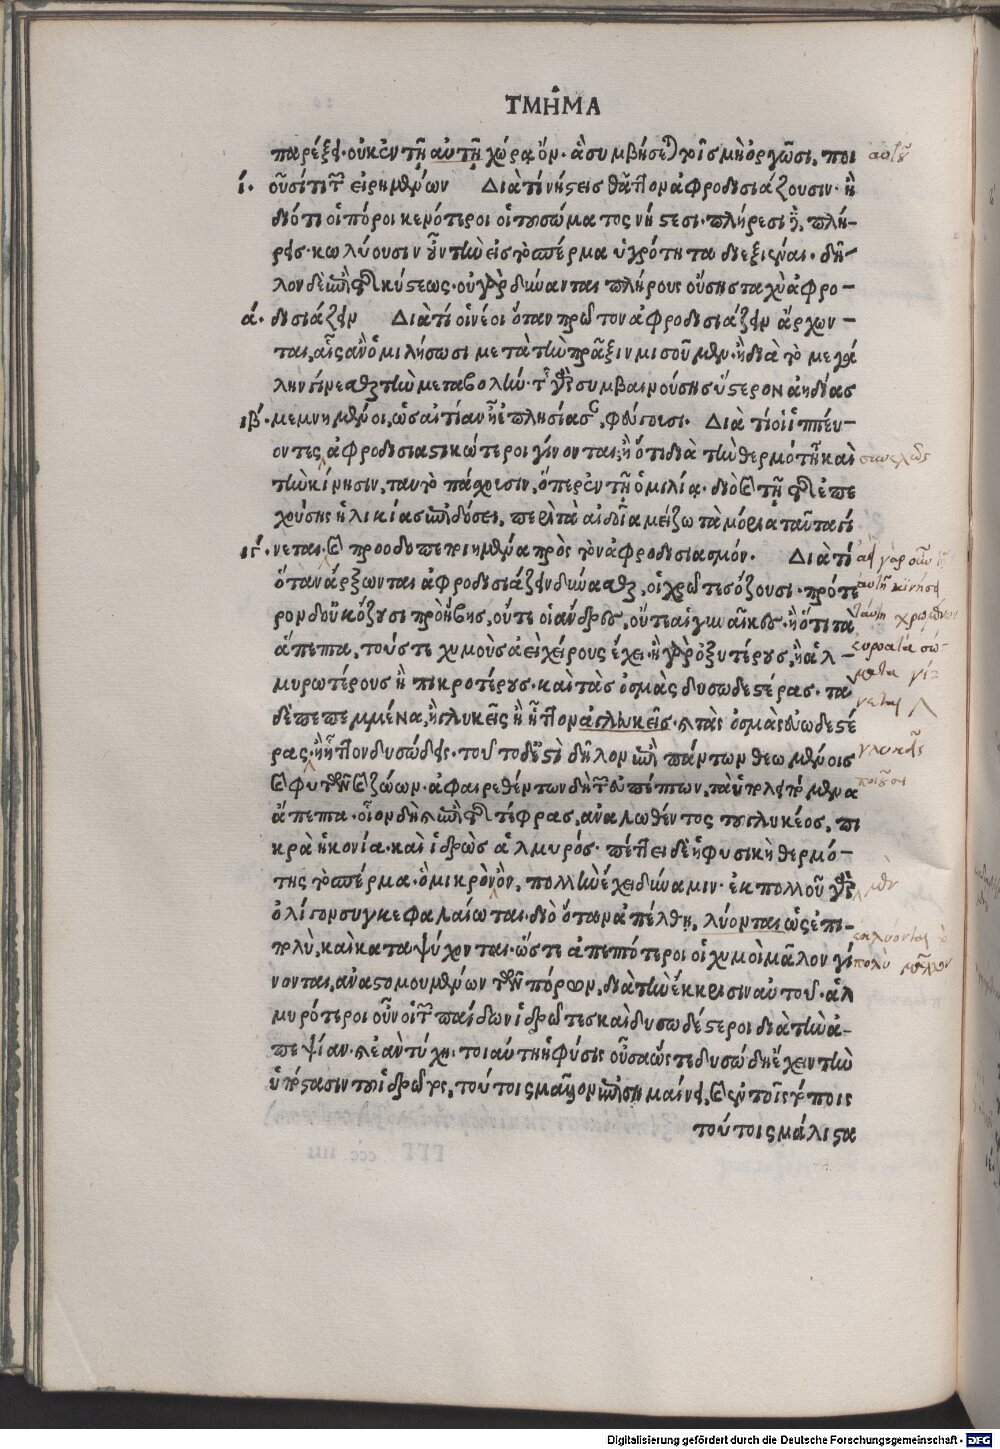 ΤΜΗ͂ΜΑ
παρέξει. οὐκ ἐν τῇ αὐτῇ χώρᾳ ὄν. ἃ συμβήσεται τοῖς μὴ ὀργῶσι, ποι αὐτοῦ
ί. οῦσί τι τῶν εἰρημένων Διὰ τί νήστεις θᾶττον ἀφροδισιάζουσιν. ἢ
διότι οἱ πόροι κενότεροι οἱ τοῦ σώματος νήστεσι. πλήρεσι δὲ, πλή-
ρεις. κωλύουσιν οὖν τὴν εἰς τὸ σπέρμα ὑγρότητα διεξιέναι. δῆ-
λον δὲ ἐπὶ τῆς κύστεως. οὐ γὰρ δύνανται πλήρους οὔσης ταχὺ ἀφρο-
ά. δισιάζειν Διὰ τί οἱ νέοι ὅταν πρῶτον ἀφροδισιάζειν ἄρχων-
ται, αἷς ἂν ὁμιλήσωσι μετὰ τὴν πρᾶξιν μισοῦμεν. ἢ διὰ τὸ μεγά
λην γίνεσθαι τὴν μεταβολήν. τῆς γὰρ συμβαινούσης ὕστερον ἀηδίας
ιβ́. μεμνημένοι, ὡς αἰτίαν ᾗ ἐπλησίασαν, φεύγουσι. Διὰ τί οἱ ἱππεύ-
οντες, ἀφροδισιαστικώτεροι γίνονται, ἢ ὅτι διὰ τὴν θερμότητα καὶ συνεχῶς
τὴν κίνησιν, ταυτὸ πάσχουσιν, ὅπερ ἐν τῇ ὁμιλίᾳ. διὸ καὶ τῇ τῆς ἐπε
χούσης ἡλικίας ἐπιδόσει, περὶ τὰ αἰδοῖα μείζω τὰ μόρια ταῦτα γί
ιγ́. νεται. καὶ προοδοπεποιημένα πρὸς τὸν ἀφροδισιασμόν. Διὰ τί ἀεὶ γὰρ οὖν τῇ
ὅταν ἄρξωνται ἀφροδισιάζειν δύνασθαι, οἱ χρῶτες ὄζουσι. πρότε αὐτῇ κινήσει
ρον δ' οὐκ ὄζουσι πρὸ ἥβης, οὔτε οἱ ἄνδρες, οὔτε αἱ γυναῖκες. ἢ ὅτι τὰ ταύτῃ χρωμένων
ἄπεπτα, τούς τε χυμοὺς ἀεὶ χείρους ἔχει. ἢ γὰρ ὀξυτέρους, ἢ ἁλ- εὐροώτερα σώ-
μυρωτέρους ἢ πικροτέρους. καὶ τὰς ὀσμὰς δυσωδεστέρας. τὰ ματα γί-
δὲ πεπεμμένα, ἢ γλυκεῖς ἢ ἧττον ἀγλυκεῖς. καὶ τὰς ὀσμὰς εὐωδεστέ νεται
ρας. ἢ ἧττον δυσώδεις. τοῦτο δέ ἐστι δῆλον ἐπὶ πάντων θεωμένοις γλυκεῖς
καὶ φυτῶν καὶ ζώων. ἀφαιρεθέντων δὴ τῶν εὐπέπτων, τὰ ὑπολειπόμενα
ἄπεπτα. οἷον δὴ καὶ ἐπὶ τῆς τέφρας, ἀναλωθέντος τοῦ γλυκέος, πι
κρὰ ἡ κονία. καὶ ἱδρὼς ἁλμυρός. πέττει δὲ ἡ φυσικὴ θερμό-
της τὸ σπέρμα. ὃ μικρὸν ὂν, πολλὴν ἔχει δύναμιν. ἐκ πολλοῦ γὰρ μὲν
ὀλίγον συγκεφαλαίωται. διὸ ὅταν ἀπέλθῃ, λύονται ὡς ἐπι- ἐκλύονται
πολὺ, καὶ καταψύχονται. ὥστε ἀπεπτότεροι οἱ χυμοὶ μᾶλλον γί πολὺ μᾶλλον
νονται, ἀναστομουμένων τῶν πόρων, διὰ τὴν ἔκκρισιν αὐτοῦ. ἁλ
μυρότεροι οὖν οἱ τῶν παίδων ἱδρῶτες καὶ δυσωδέστεροι διὰ τὴν ἀ-
πεψίαν. καὶ ἐὰν τύχῃ. τοιαύτη ἡ φύσις οὖσα ὥστε δυσώδη ἔχειν τὴν
ὑπόστασιν τοῦ ἱδρῶτος, τούτοις μᾶλλον ἐπισημαίνει, καὶ ἐν τοῖς τόποις
τούτοις μάλιστα
Digitalisierung gefördert durch die Deutsche Forschungsgemeinschaft - DFG